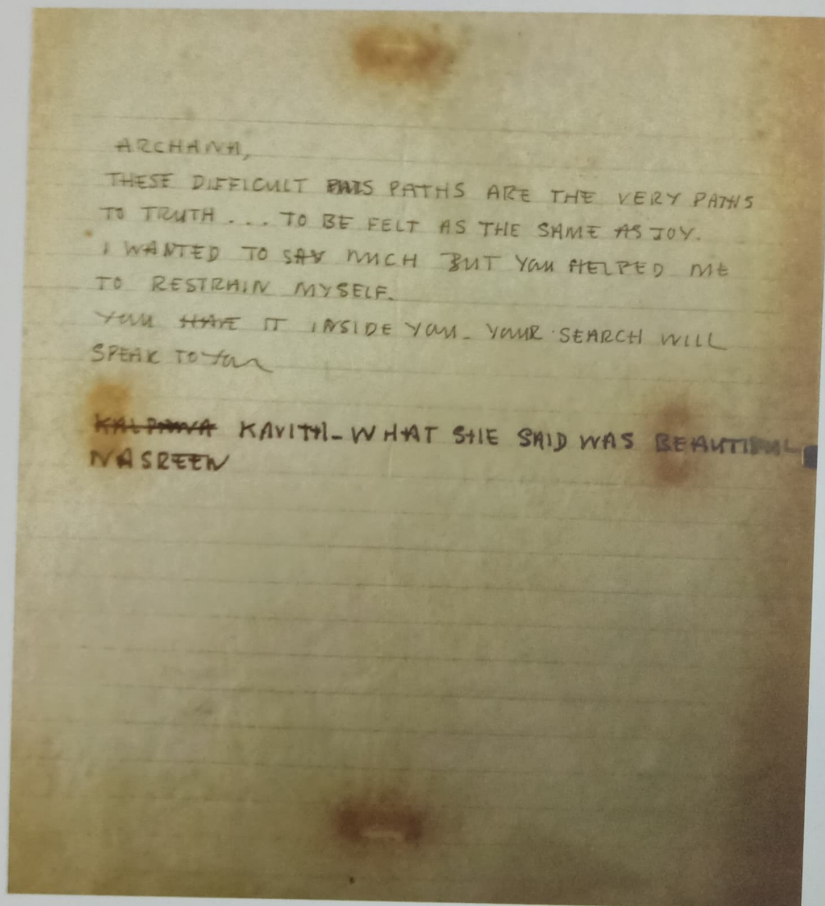 ARCHANA,
THESE DIFFICULT PATHS ARE THE VERY PATHS
TO TRUTH . . . TO BE FELT AS THE SAME AS JOY.
I WANTED TO SAY MUCH BUT YOU HELPED ME
TO RESTRAIN MYSELF.
YOU HAVE IT INSIDE YOU_ YOUR SEARCH WILL
SPEAK TO YOU
KALPANA KAVITA_ WHAT SHE SAID WAS BEAUTIFUL
NASREEN